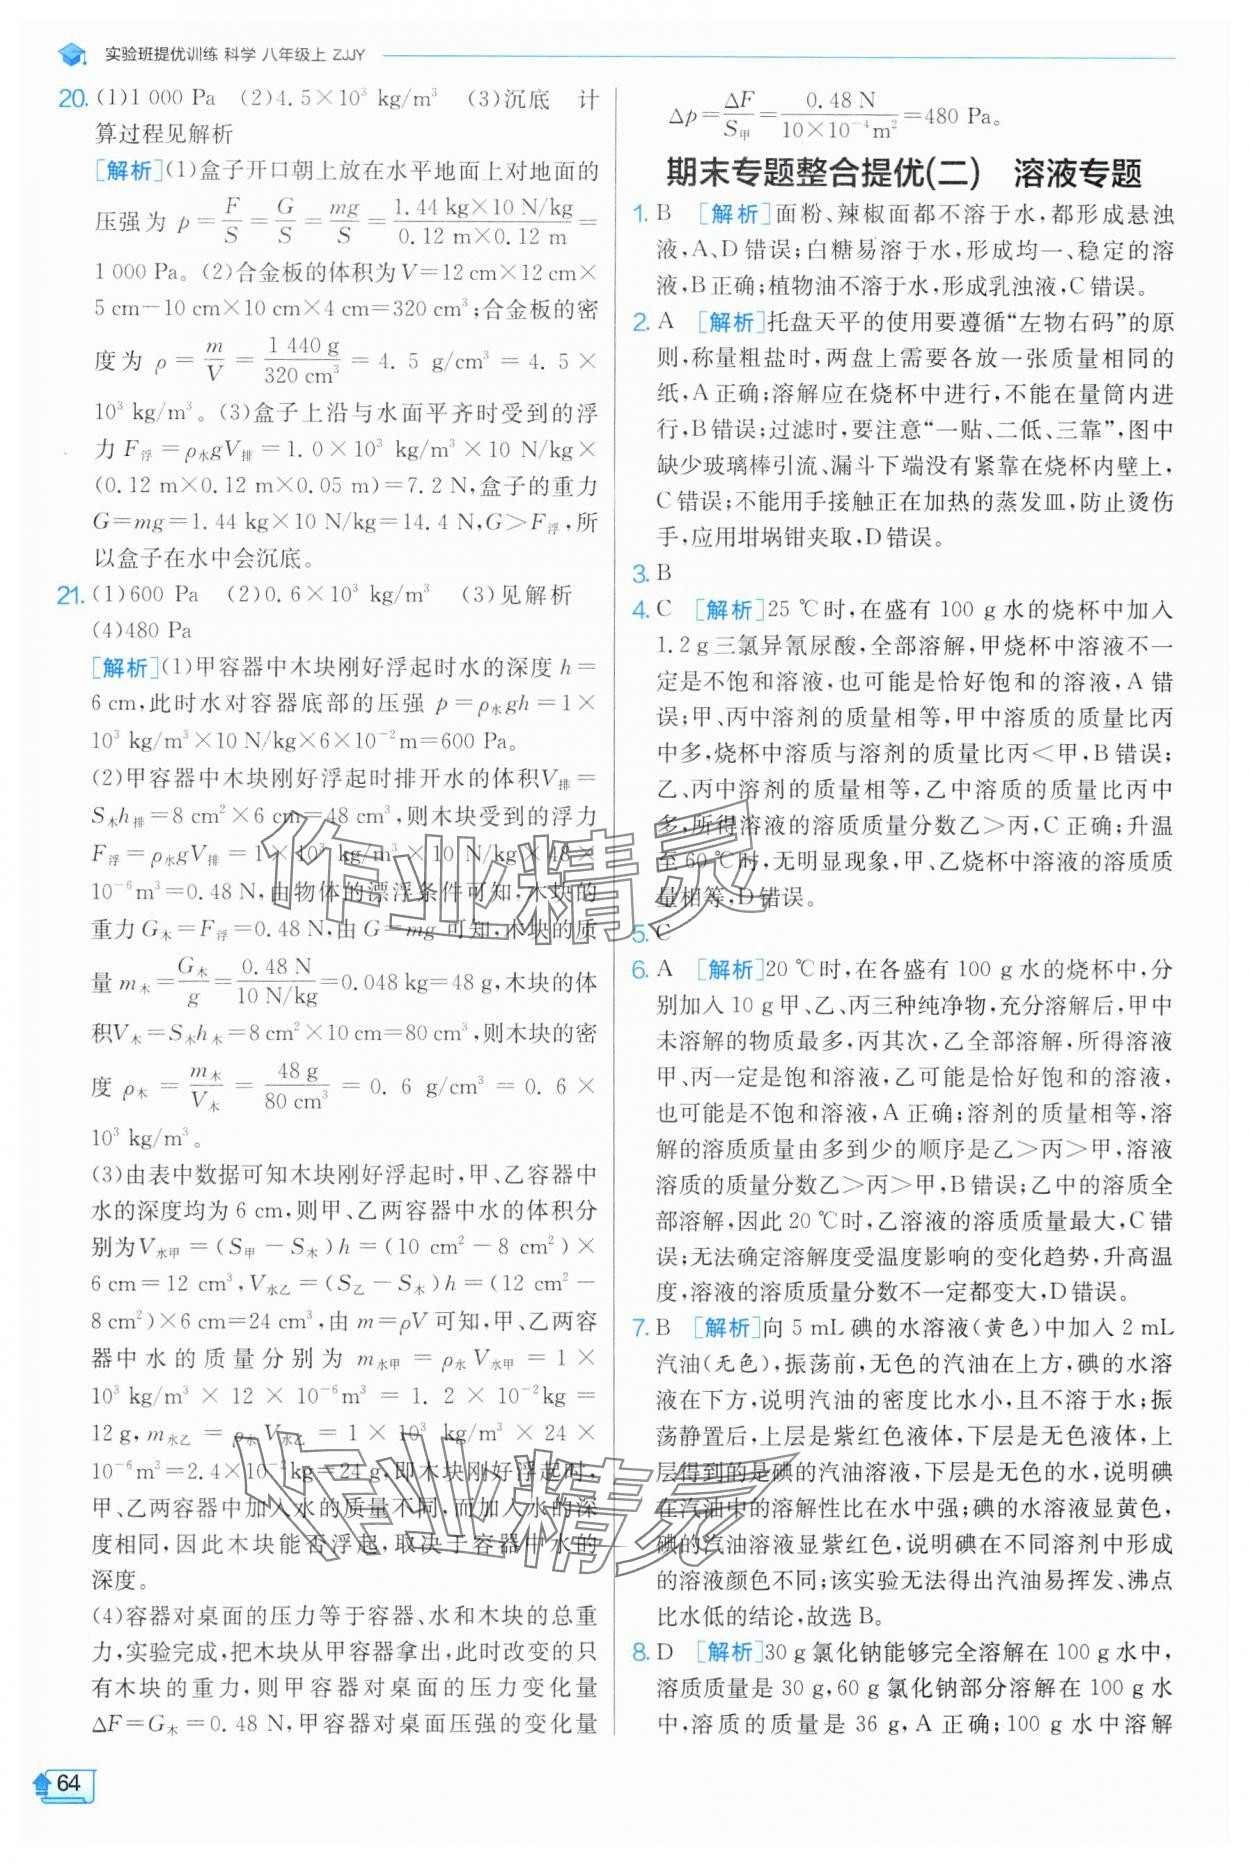 实验班提优训练 科学 八年级上 ZJJY
20. (1)1 000 Pa (2)4.5×10³ kg/m³ (3)沉底 计
算过程见解析
[解析](1)盒子开口朝上放在水平地面上对地面的
压强为 p=F/S=G/S=mg/S=(1.44 kg×10 N/kg)/(0.12 m×0.12 m)=
1 000 Pa。(2)合金板的体积为V=12 cm×12 cm×
5 cm-10 cm×10 cm×4 cm=320 cm³;合金板的密
度为 ρ=m/V=1 440 g/320 cm³=4.5 g/cm³=4.5×
10³ kg/m³。(3)盒子上沿与水面平齐时受到的浮
力 F浮=ρ水gV排=1.0×10³ kg/m³×10 N/kg×
(0.12 m×0.12 m×0.05 m)=7.2 N,盒子的重力
G=mg=1.44 kg×10 N/kg=14.4 N,G>F浮,所
以盒子在水中会沉底。
21. (1)600 Pa (2)0.6×10³ kg/m³ (3)见解析
(4)480 Pa
[解析](1)甲容器中木块刚好浮起时水的深度 h=
6 cm,此时水对容器底部的压强 p=ρ水gh=1×
10³ kg/m³×10 N/kg×6×10⁻²m=600 Pa。
(2)甲容器中木块刚好浮起时排开水的体积V排=
S木h排=8 cm²×6 cm=48 cm³,则木块受到的浮力
F浮=ρ水gV排=1×10³ kg/m³×10 N/kg×48×
10⁻⁶m³=0.48 N,由物体的漂浮条件可知,木块的
重力G木=F浮=0.48 N,由G=mg可知,木块的质
量m木=G木/g=0.48 N/10 N/kg=0.048 kg=48 g,木块的体
积V木=S木h木=8 cm²×10 cm=80 cm³,则木块的密
度 ρ木=m木/V木=48 g/80 cm³=0.6 g/cm³=0.6×
10³ kg/m³。
(3)由表中数据可知木块刚好浮起时,甲、乙容器中
水的深度均为 6 cm,则甲、乙两容器中水的体积分
别为V水甲=(S甲-S木)h=(10 cm²-8 cm²)×
6 cm=12 cm³,V水乙=(S乙-S木)h=(12 cm²-
8 cm²)×6 cm=24 cm³,由 m=ρV 可知,甲、乙两容
器中水的质量分别为 m水甲=ρ水V水甲=1×
10³ kg/m³×12×10⁻⁶m³=1.2×10⁻²kg=
12 g,m水乙=ρ水V水乙=1×10³ kg/m³×24×
10⁻⁶m³=2.4×10⁻²kg=24 g,即木块刚好浮起时,
甲、乙两容器中加入水的质量不同,而加入水的深
度相同,因此木块能否浮起,取决于容器中水的
深度。
(4)容器对桌面的压力等于容器、水和木块的总重
力,实验完成,把木块从甲容器拿出,此时改变的只
有木块的重力,则甲容器对桌面的压力变化量
ΔF=G木=0.48 N,甲容器对桌面压强的变化量
Δp=ΔF/S甲=0.48 N/10×10⁻⁴m²=480 Pa。
期末专题整合提优(二) 溶液专题
1. B [解析]面粉、辣椒面都不溶于水,都形成悬浊
液,A、D错误;白糖易溶于水,形成均一、稳定的溶
液,B正确;植物油不溶于水,形成乳浊液,C错误。
2. A [解析]托盘天平的使用要遵循“左物右码”的原
则,称量粗盐时,两盘上需要各放一张质量相同的
纸,A正确;溶解应在烧杯中进行,不能在量筒内进
行,B错误;过滤时,要注意“一贴、二低、三靠”,图中
缺少玻璃棒引流、漏斗下端没有紧靠在烧杯内壁上,
C错误;不能用手接触正在加热的蒸发皿,防止烫伤
手,应用坩埚钳夹取,D错误。
3. B
4. C [解析]25 ℃时,在盛有 100 g 水的烧杯中加入
1.2 g三氯异氰尿酸,全部溶解,甲烧杯中溶液不一
定是不饱和溶液,也可能是恰好饱和的溶液,A错
误;甲、丙中溶剂的质量相等,甲中溶质的质量比丙
中多,烧杯中溶质与溶剂的质量比丙<甲,B错误;
乙、丙中溶剂的质量相等,乙中溶质的质量比丙中
多,所得溶液的溶质质量分数乙>丙,C正确;升温
至60 ℃时,无明显现象,甲、乙烧杯中溶液的溶质质
量相等,D错误。
5. C
6. A [解析]20 ℃时,在各盛有 100 g水的烧杯中,分
别加入10 g甲、乙、丙三种纯净物,充分溶解后,甲中
未溶解的物质最多,丙其次,乙全部溶解,所得溶液
甲、丙一定是饱和溶液,乙可能是恰好饱和的溶液,
也可能是不饱和溶液,A正确;溶剂的质量相等,溶
解的溶质质量由多到少的顺序是乙>丙>甲,溶液
溶质的质量分数乙>丙>甲,B错误;乙中的溶质全
部溶解,因此20 ℃时,乙溶液的溶质质量最大,C错
误;无法确定溶解度受温度影响的变化趋势,升高温
度,溶液的溶质质量分数不一定都变大,D错误。
7. B [解析]向 5 mL碘的水溶液(黄色)中加入2 mL
汽油(无色),振荡前,无色的汽油在上方,碘的水溶
液在下方,说明汽油的密度比水小,且不溶于水;振
荡静置后,上层是紫红色液体,下层是无色液体,上
层得到的是碘的汽油溶液,下层是无色的水,说明碘
在汽油中的溶解性比在水中强;碘的水溶液显黄色,
碘的汽油溶液显紫红色,说明碘在不同溶剂中形成
的溶液颜色不同;该实验无法得出汽油易挥发、沸点
比水低的结论,故选B。
8. D [解析]30 g氯化钠能够完全溶解在100 g水中,
溶质质量是30 g,60 g氯化钠部分溶解在100 g水
中,溶质的质量是 36 g,A 正确;100 g水中溶解
64
作业精灵
作业精灵